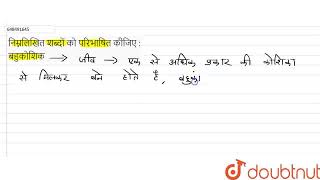 649491645
निम्नलिखित शब्दों को परिभाषित कीजिए :
बहुकोशिक → जीव → एक से अधिक प्रकार की कोशिका
से मिलकर बने होते हैं, बहुको
doubtnut